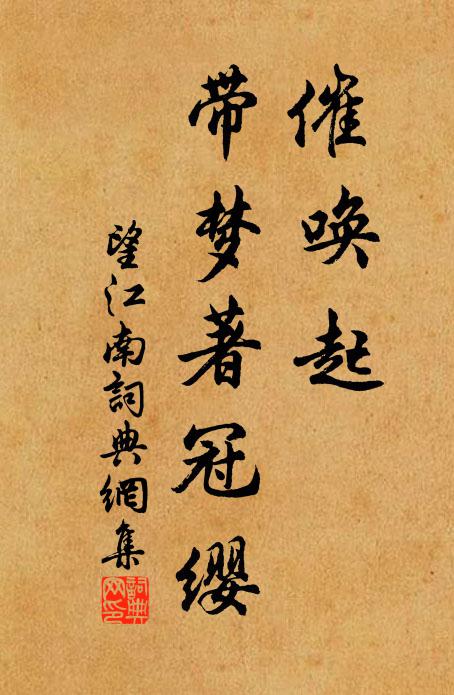 催唤起
带梦著冠缨
望江南詞典網集
詞典网印